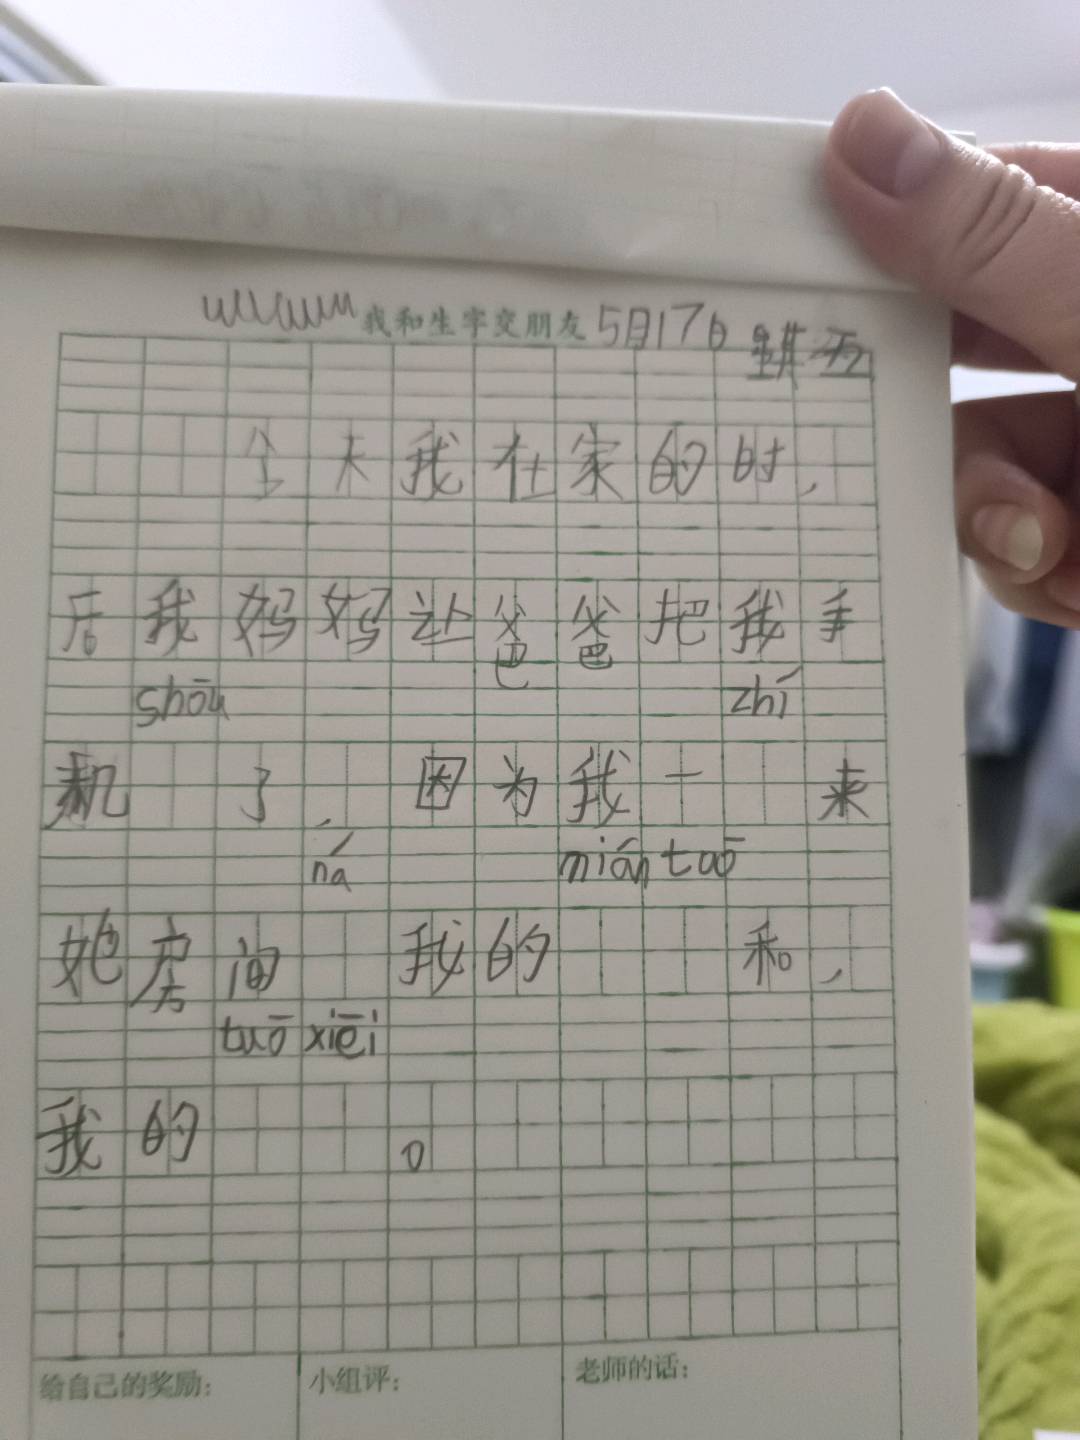 我和生字交朋友 5月17日 星期五
今天我在家的时,
后我妈妈让爸爸把我手
shōu zhí
机 了, 因为我一 来
ná mián tuō
她房间 我的 和,
tuō xiēi
我的 。
给自己的奖励: 小组评: 老师的话: